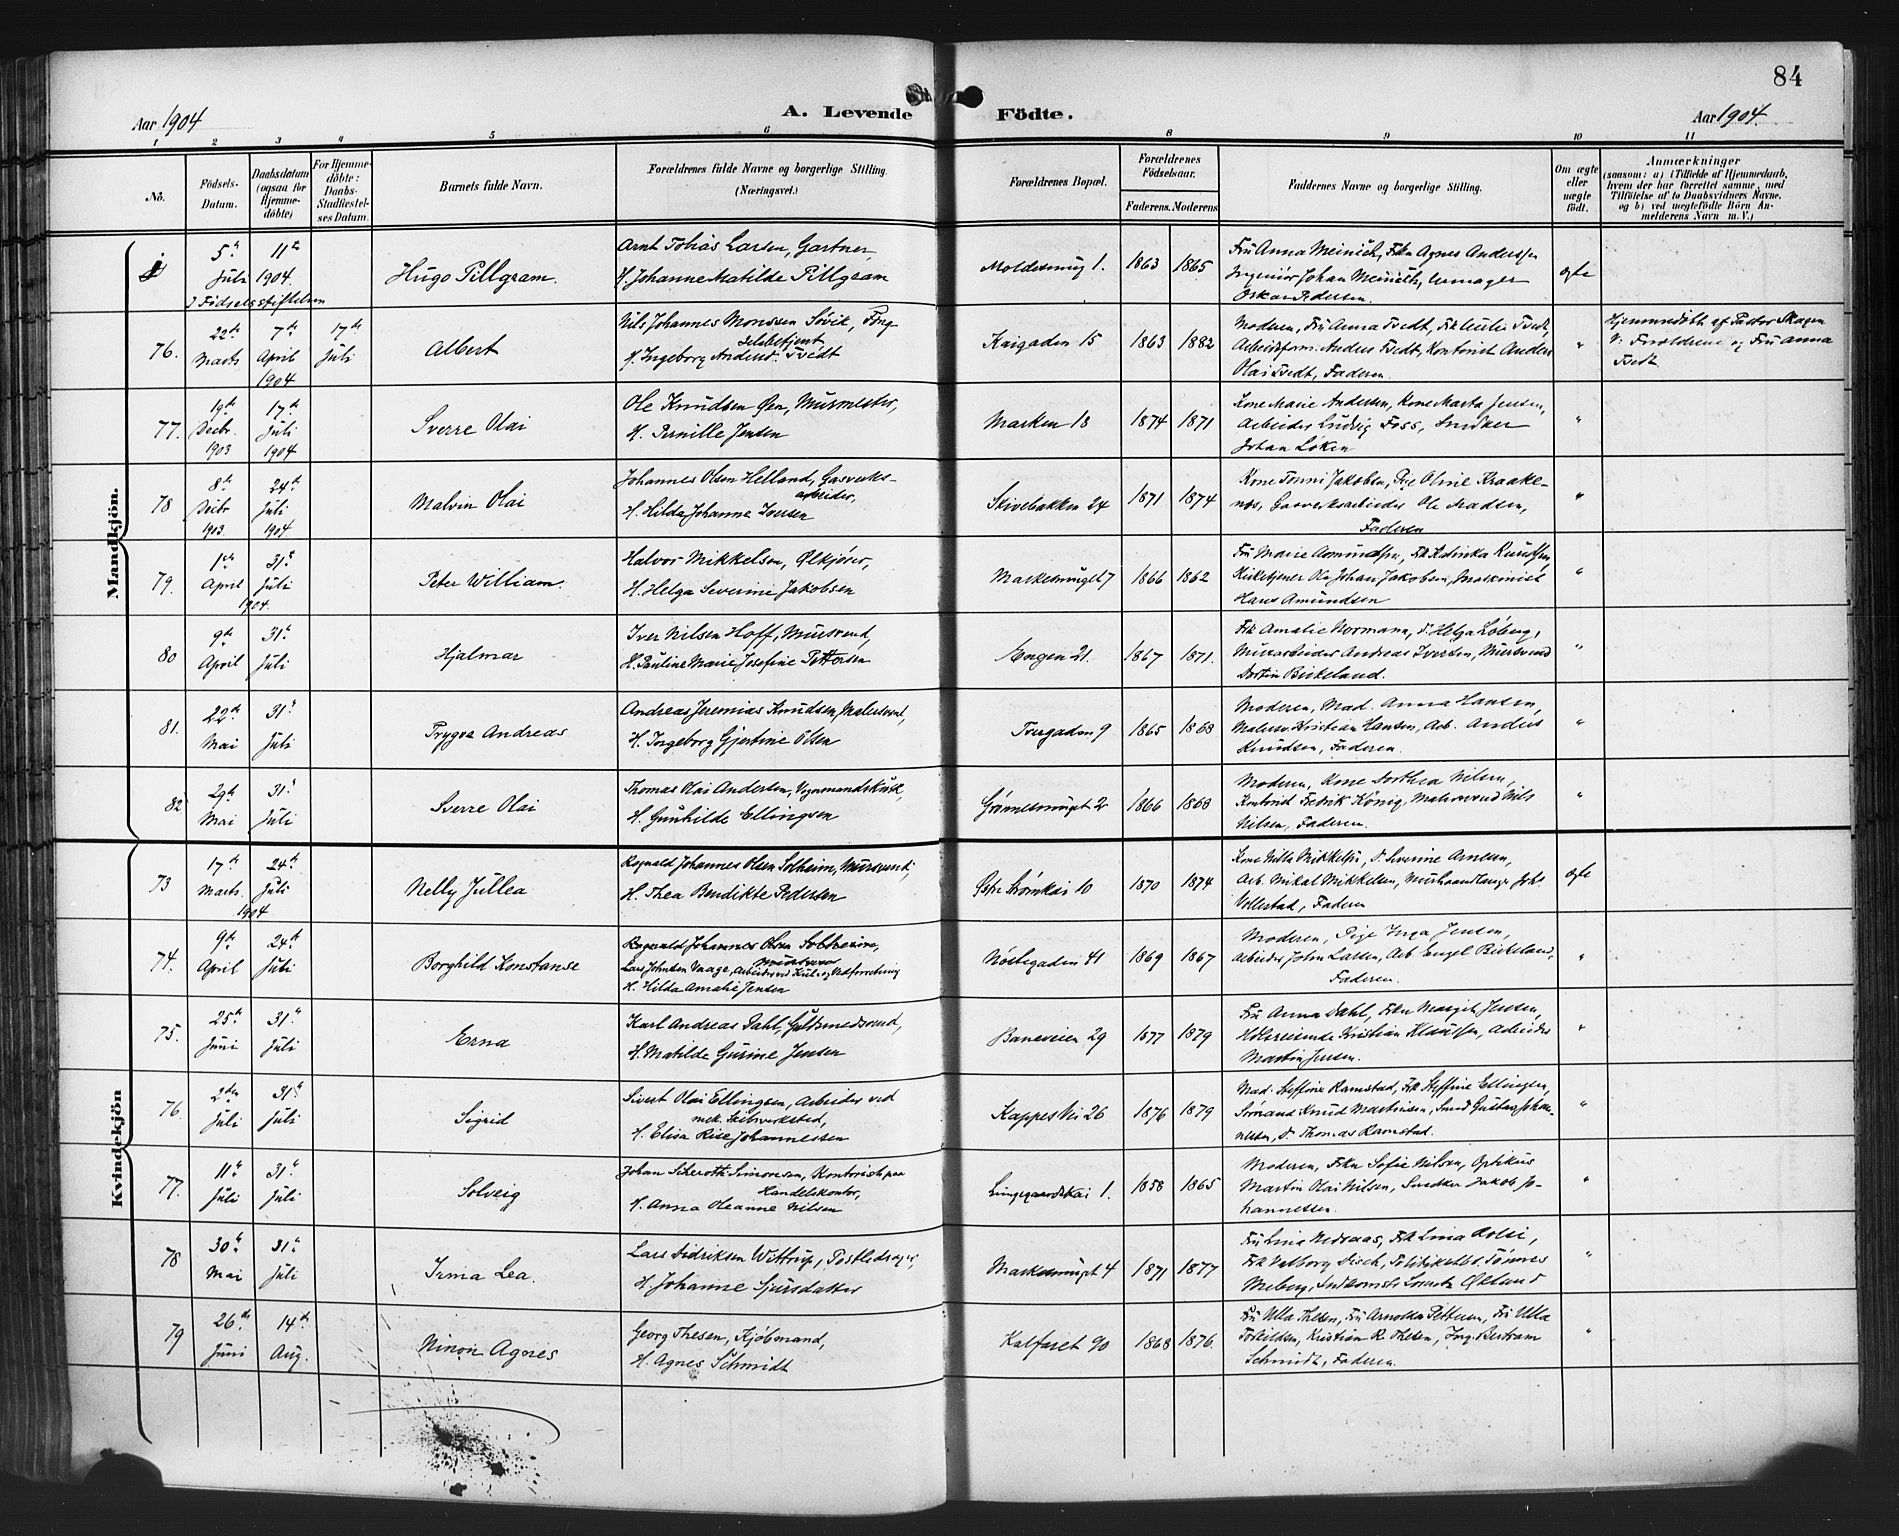 84
Aar 1904
A. Levende Födte.
Aar 1904.
1 2 3 4 5 6 8 9 10 11
No.
Födsels-
Datum.
Daabsdatum
(ogsaa for
Hjemme-
döbte)
For Hjemme-
döbte:
Daabs-
Stadfæstel-
ses Datum.
Barnets fulde Navn.
Forældrenes fulde Navne og borgerlige Stilling
(Næringsvei.)
Forældrenes Bopæl.
Forældrenes
Födselsaar.
Faderens. Moderens
Faddernes Navne og borgerlige Stilling.
Om ægte
eller
uægte
födt.
Anmærkninger
(saasom: a) i Tilfælde af Hjemmedaab,
hvem der har forrettet samme, med
Tilföielse af to Daabsvidners Navne.
og b) ved uægtefödte Börn An-
melderens Navn m. V.)
Mandkjön.
5te Juli
11te 1904.
I Fødselsstiftelsen
Hugo Pillgram.
Arnt Tobias Larsen, Gartner,
H. Johanne Matilde Pillgram
Moldesmug 1.
1863 1865
Fru Anna Meinich, Frkn Agnes Anderssen
Ingeniör Johan Meinich, Urmager
Oskar Pedersen.
ægte
76.
22de Marts
7de April 1904
17de Juli
Albert
Nils Johannes Monssen Søvik,
H. Ingeborg Anders. Tvedt
Kaigaden 15
1863 1882
Moderen, Fru Anna Tvedt, Frk Tvedt,
Arbeidsform. Anders Tvedt, Kontorist Anders
Olai Tvedt, Faderen.
"
Hjemmedøbt af Pastor Skagen
V: Forældrene og Fru Anna
Tvedt.
77.
19de Decbr. 1903
17de Juli 1904
Sverre Olai
Ole Knudsen Øen, Murmester,
H. Pernille Jensen
Marken 18
1874 1871
Kone Marie Andersen, Kone Marta Jensen,
Arbeider Ludvig Foss, Snedker
Johan Løken
"
78
8de Decbr 1903
24de Juli 1904
Malvin Olai
Johannes Olsen Helland, Gasverks-
arbeider,
H. Hilda Johanne Iversen
Skivebakken 24
1871 1874
Kone Tonni Jakobsen, Pige Oline Kraake-
nes, Gasverksarbeider Ole Madsen,
Faderen
"
79.
1ste April
31te Juli
1904.
Peter William.
Halvor Mikkelsen, Ølkjører,
H. Helga Severine Jakobsen
Markesmuget 7
1866 1862
Fru Marie Amundsen, Frk Katinka Knudsen,
Kirketjener Ole Johan Jakobsen, Maskinist
Hans Amundsen
"
80
9de April
31te Juli
Hjalmar
Iver Nilsen Hoff, Mursvend,
H. Pauline Marie Josefine Pettersen
Engen 21.
1867 1871.
Frk Amalie Normann, Do Helga Løberg,
Murarbeider Andreas Iversen, Mursvend
Birkeland.
"
81.
22de Mai
31te Juli
Trygve Andreas
Andreas Jeremias Knudsen, Malersvend,
H. Ingeborg Gjertine Olsen
Tvergaden 9
1865 1868
Moderen, Mad. Anna Hansen,
Malersv. Kristian Hansen, Arb. Anders
Knudsen, Faderen.
"
82
29de Mai
31te Juli
Sverre Olai
Thomas Olai Andersen, Vognmandskusk,
H. Gunhilde Ellingsen
Grønnesmuget 2
1866 1868
Moderen, Kone Dorthea Nilsen,
Kontorist Fredrik König, Malersvend Nils
Nilsen, Faderen.
"
Kvindekjön
73
17de Marts
24de Juli
1904
Nelly Jullea
Ragnald Johannes Olsen Solheim, Mursvend,
H. Thea Bendikte Pedersen
Østre Strømkai 10
1870 1874
Kone Nilla Mikkelsen, Do Severine Arnesen,
Arb. Mikal Mikkelsen, Joh.
Vollestad, Faderen
ægte
74.
9de April
24de Juli
Borghild Konstanse
Ragnald Johannes Olsen Solheim,
Mursvend
Lars Johnsen Vaage, Arbeider ved Kul- og Vedforretning
H. Hilda Amalie Jensen
Nøstegaden 41
1869 1867
Moderen, Pige Inga Jensen,
Arbeider John Larsen, Arb. Engel Birkeland,
Faderen.
"
75.
25de Juni
31te Juli
Erna
Karl Andreas Dahl, Guldsmedsvend,
H. Matilde Gurine Jensen
Baneveien 29
1877 1879
Fru Anna Dahl, Frkn Margit Jensen,
Kristian Klaussen, Arbeider
Martin Jensen.
"
76.
2den Juli
31te Juli
Sigrid
Sivert Olai Ellingsen, Arbeider ved
mek. Skibsverksted,
H. Elisa Rise Johannessen
Kappes Vei 26
1876 1879
Mad. Steffine Ramstad, Frk Steffine Ellingsen,
Knud Martinsen, Smed Gustav Johan-
nessen, Do Thomas Ramstad.
"
77.
11te Juli
31te Juli
Solveig
Johan Simonsen, Kontorist paa
Handelskontor,
H. Anna Oleanne Nilsen
Lungegaardskai 1.
1858 1865
Moderen, Frkn Sofie Nilsen, Optikus
Martin Olai Nilsen, Snedker Jakob Jo-
hannessen.
"
78
30te Mai
31te Juli
Irma Lea.
Lars Didriksen Wittrup, Postbedrager,
H. Johanne Sjursdatter
Markesmuget 4
1871 1877
Fru Lina Nedraas, Frk Lina
Frk Valborg Disch, Politibetjt. Tønnes
Meberg, Lorentz Økland
"
79
26de Juni
14de Aug.
Ninon Agnes
Georg Thesen, Kjøbmand,
H. Agnes Schmidt
Kalfaret 90
1868 1876.
Fru Ulla Thesen, Fru Arnolda Petterson, Fru Ulla
Kristian R. Thesen, Ing. Bertram
Schmidt, Faderen.
"